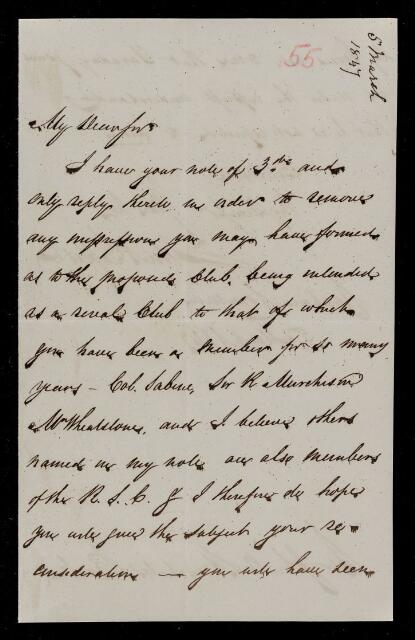 5 March
1847
55
My Dear Sir
I have your note of 3rd and
only reply thereto in order to remove
any impressions you may have formed
as to the proposed Club, being intended
as a rival Club to that of which
you have been a Member for so many
years – Col. Sabine, Sir R Murchison
Mr Wheatstone, and I believe others
named in my note are also members
of the R. S. C. & I therefore do hope
you will give the subject your re-
consideration — you will have seen